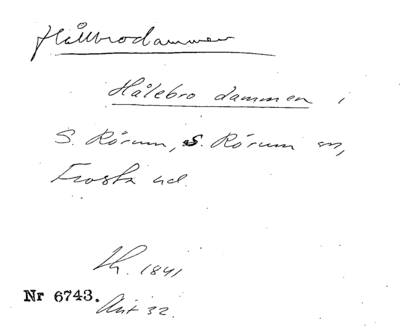 Hålebrodammen
Hålebro dammen i
S. Rörum, S. Rörum sn,
Frosta hd.
Lh. 1841
Nr 6743.
Akt 32.